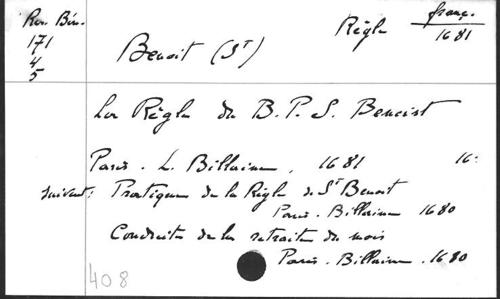 Rev. Bén.
171
4
5
Benoit (St)
Règle
franç.
1681
La Règle du B. P. S. Benoist
Paris. L. Billaine, 1681 16°
suivent: Pratique de la Règle de St Benoit
Paris. Billaine 1680
Conduite de la retraite du mois
Paris. Billaine. 1680
408